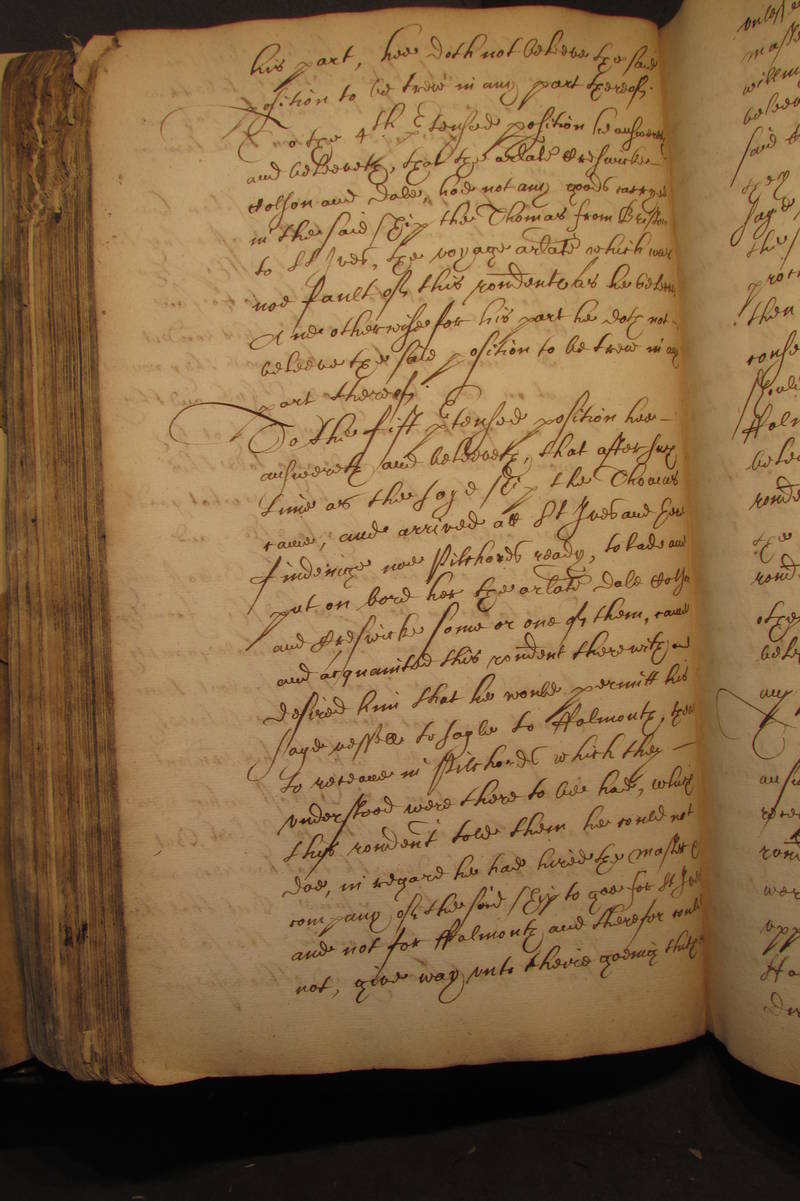 his part, hee doth not beleeve the said
position to be trew in any part thereof.
To the 4th p̄tensed position he answereth
and beleeveth, that the arlate Kreswicke
Tolson and Dale, had not any goods carryed
in the said shipp the Thomas from Bristoll
to St Ives, the voyage arlate which was
noe fault of this rondent as he beleeveth
And otherwise for his part he doth not
beleeve the said position to be trew in any
part thereof.
To the fift p̄tensed position hee
answereth and beleeveth, that after such
time as the sayd shipp the Thomas
came, and arrived att St Ives and there
findeinge noe Pilchords ready, to lade and
put on bord her the arlate Dale Tolson
and Kreswicke some or one of them, came
and acquainted this rondent therewith and
desired him that he would permitt his
sayd vessell to sayle to ffalmouth, there
to receave in Pilchords which they
understood were there to bee had, which
this rondent told them he could not
doe, in regard he had hired the master &
company of the said shipp to goe for St Ives
and not for ffalmouth and therefor could
not, give way unto theire goeing thither